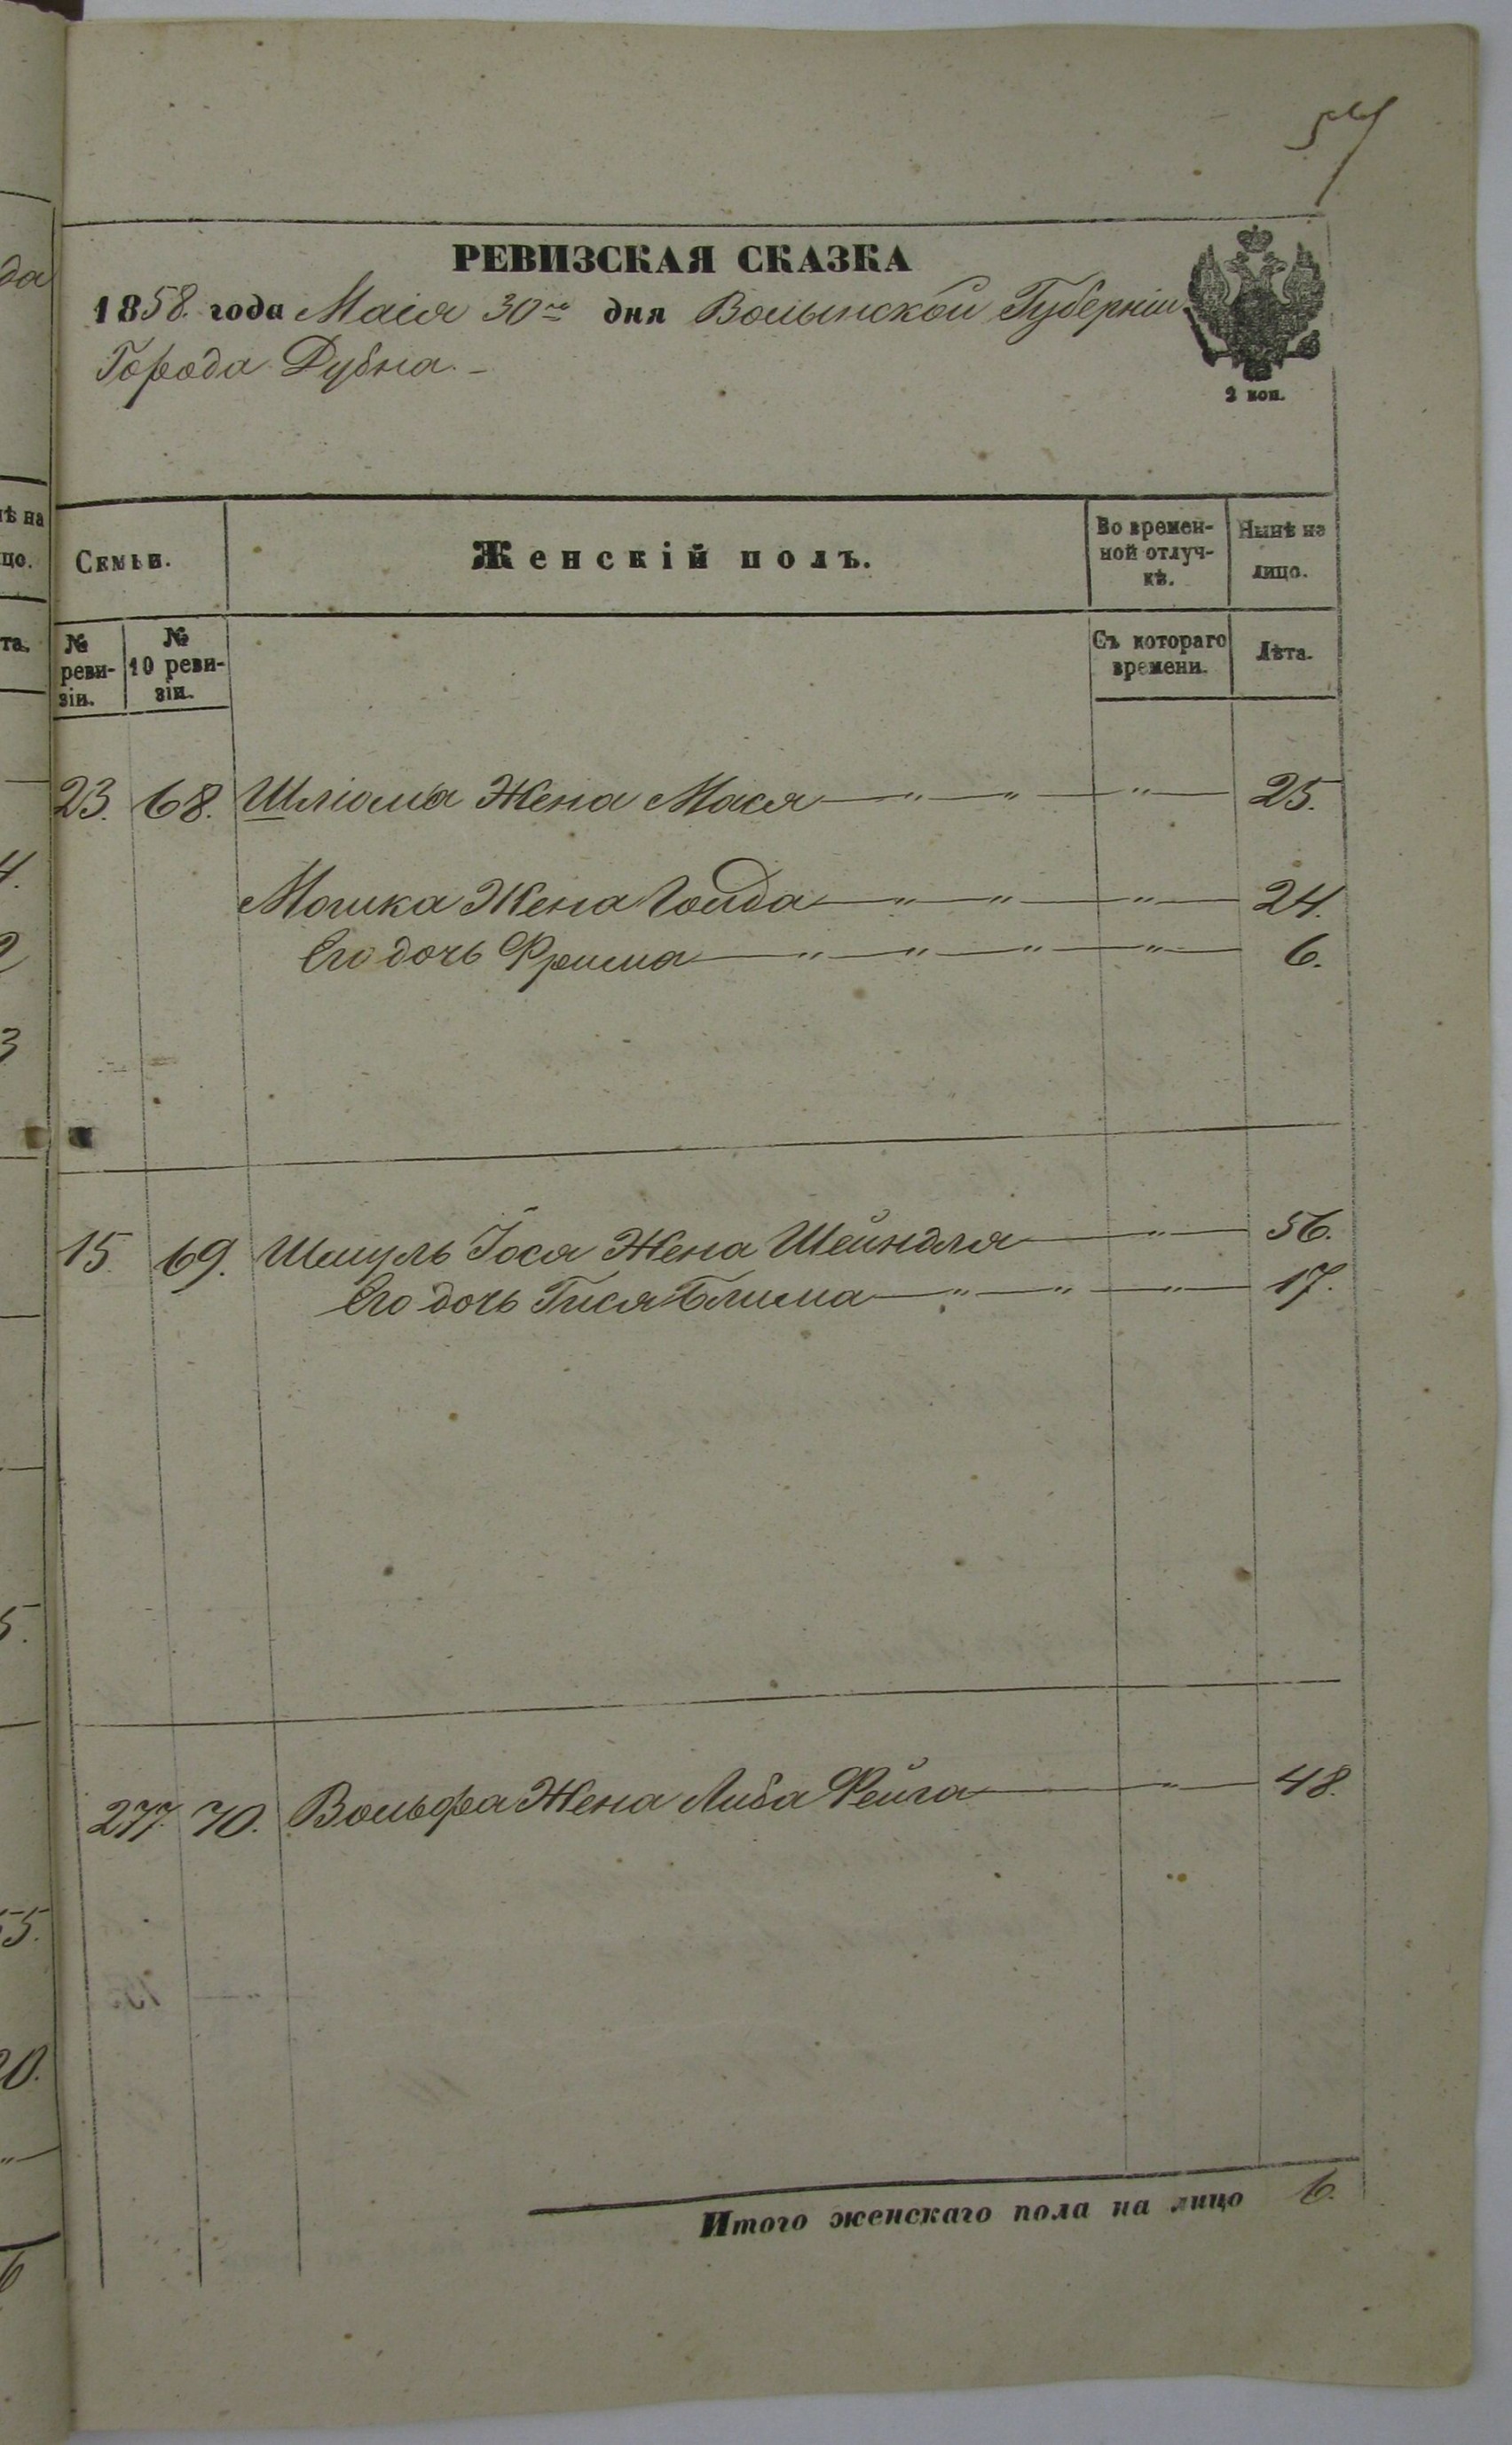 54
РЕВИЗСКАЯ СКАЗКА
1858. года Маія 30го дня Волынской Губерніи
Города Дубна. –
2 коп.
Семьи.
Женскій полъ.
Во времен-
ной отлуч-
кѣ.
Нынѣ на
лицо.
№
реви-
зіи.
№
10 реви-
зіи.
Съ котораго
времени.
Лѣта.
23. 68. Шліома Жена Мася — " — " — " — 25.
Мошка Жена Голда — " — " — " — 24.
Его дочь Фрима — " — " — " — " — 6.
15. 69. Шмуль Іося Жена Шейндля — " — 56.
Его дочь Гися Блима — " — " — " — 17.
277. 70. Вольфа Жена Либа Фейга — " — 48.
Итого женскаго пола на лицо 6.